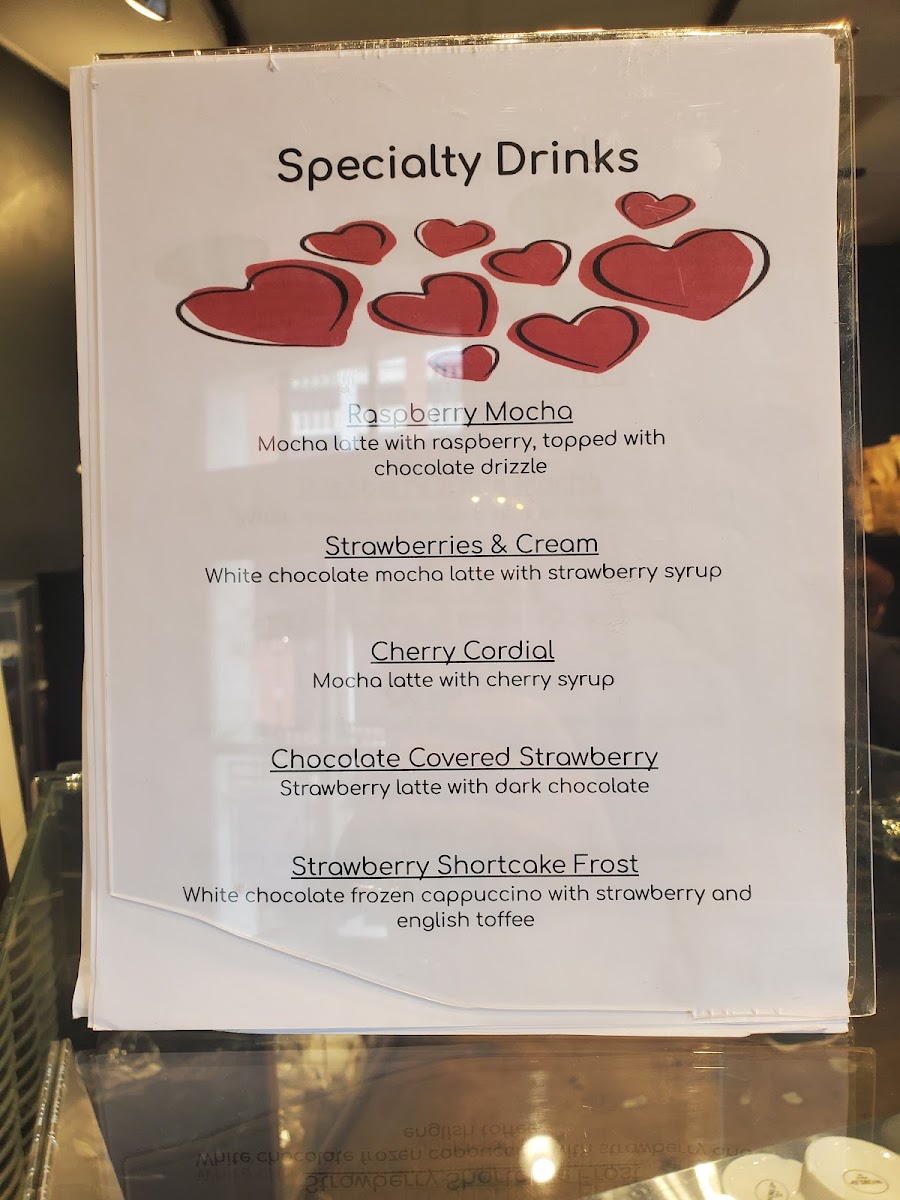 Specialty Drinks
Raspberry Mocha
Mocha latte with raspberry, topped with
chocolate drizzle
Strawberries & Cream
White chocolate mocha latte with strawberry syrup
Cherry Cordial
Mocha latte with cherry syrup
Chocolate Covered Strawberry
Strawberry latte with dark chocolate
Strawberry Shortcake Frost
White chocolate frozen cappuccino with strawberry and
english toffee